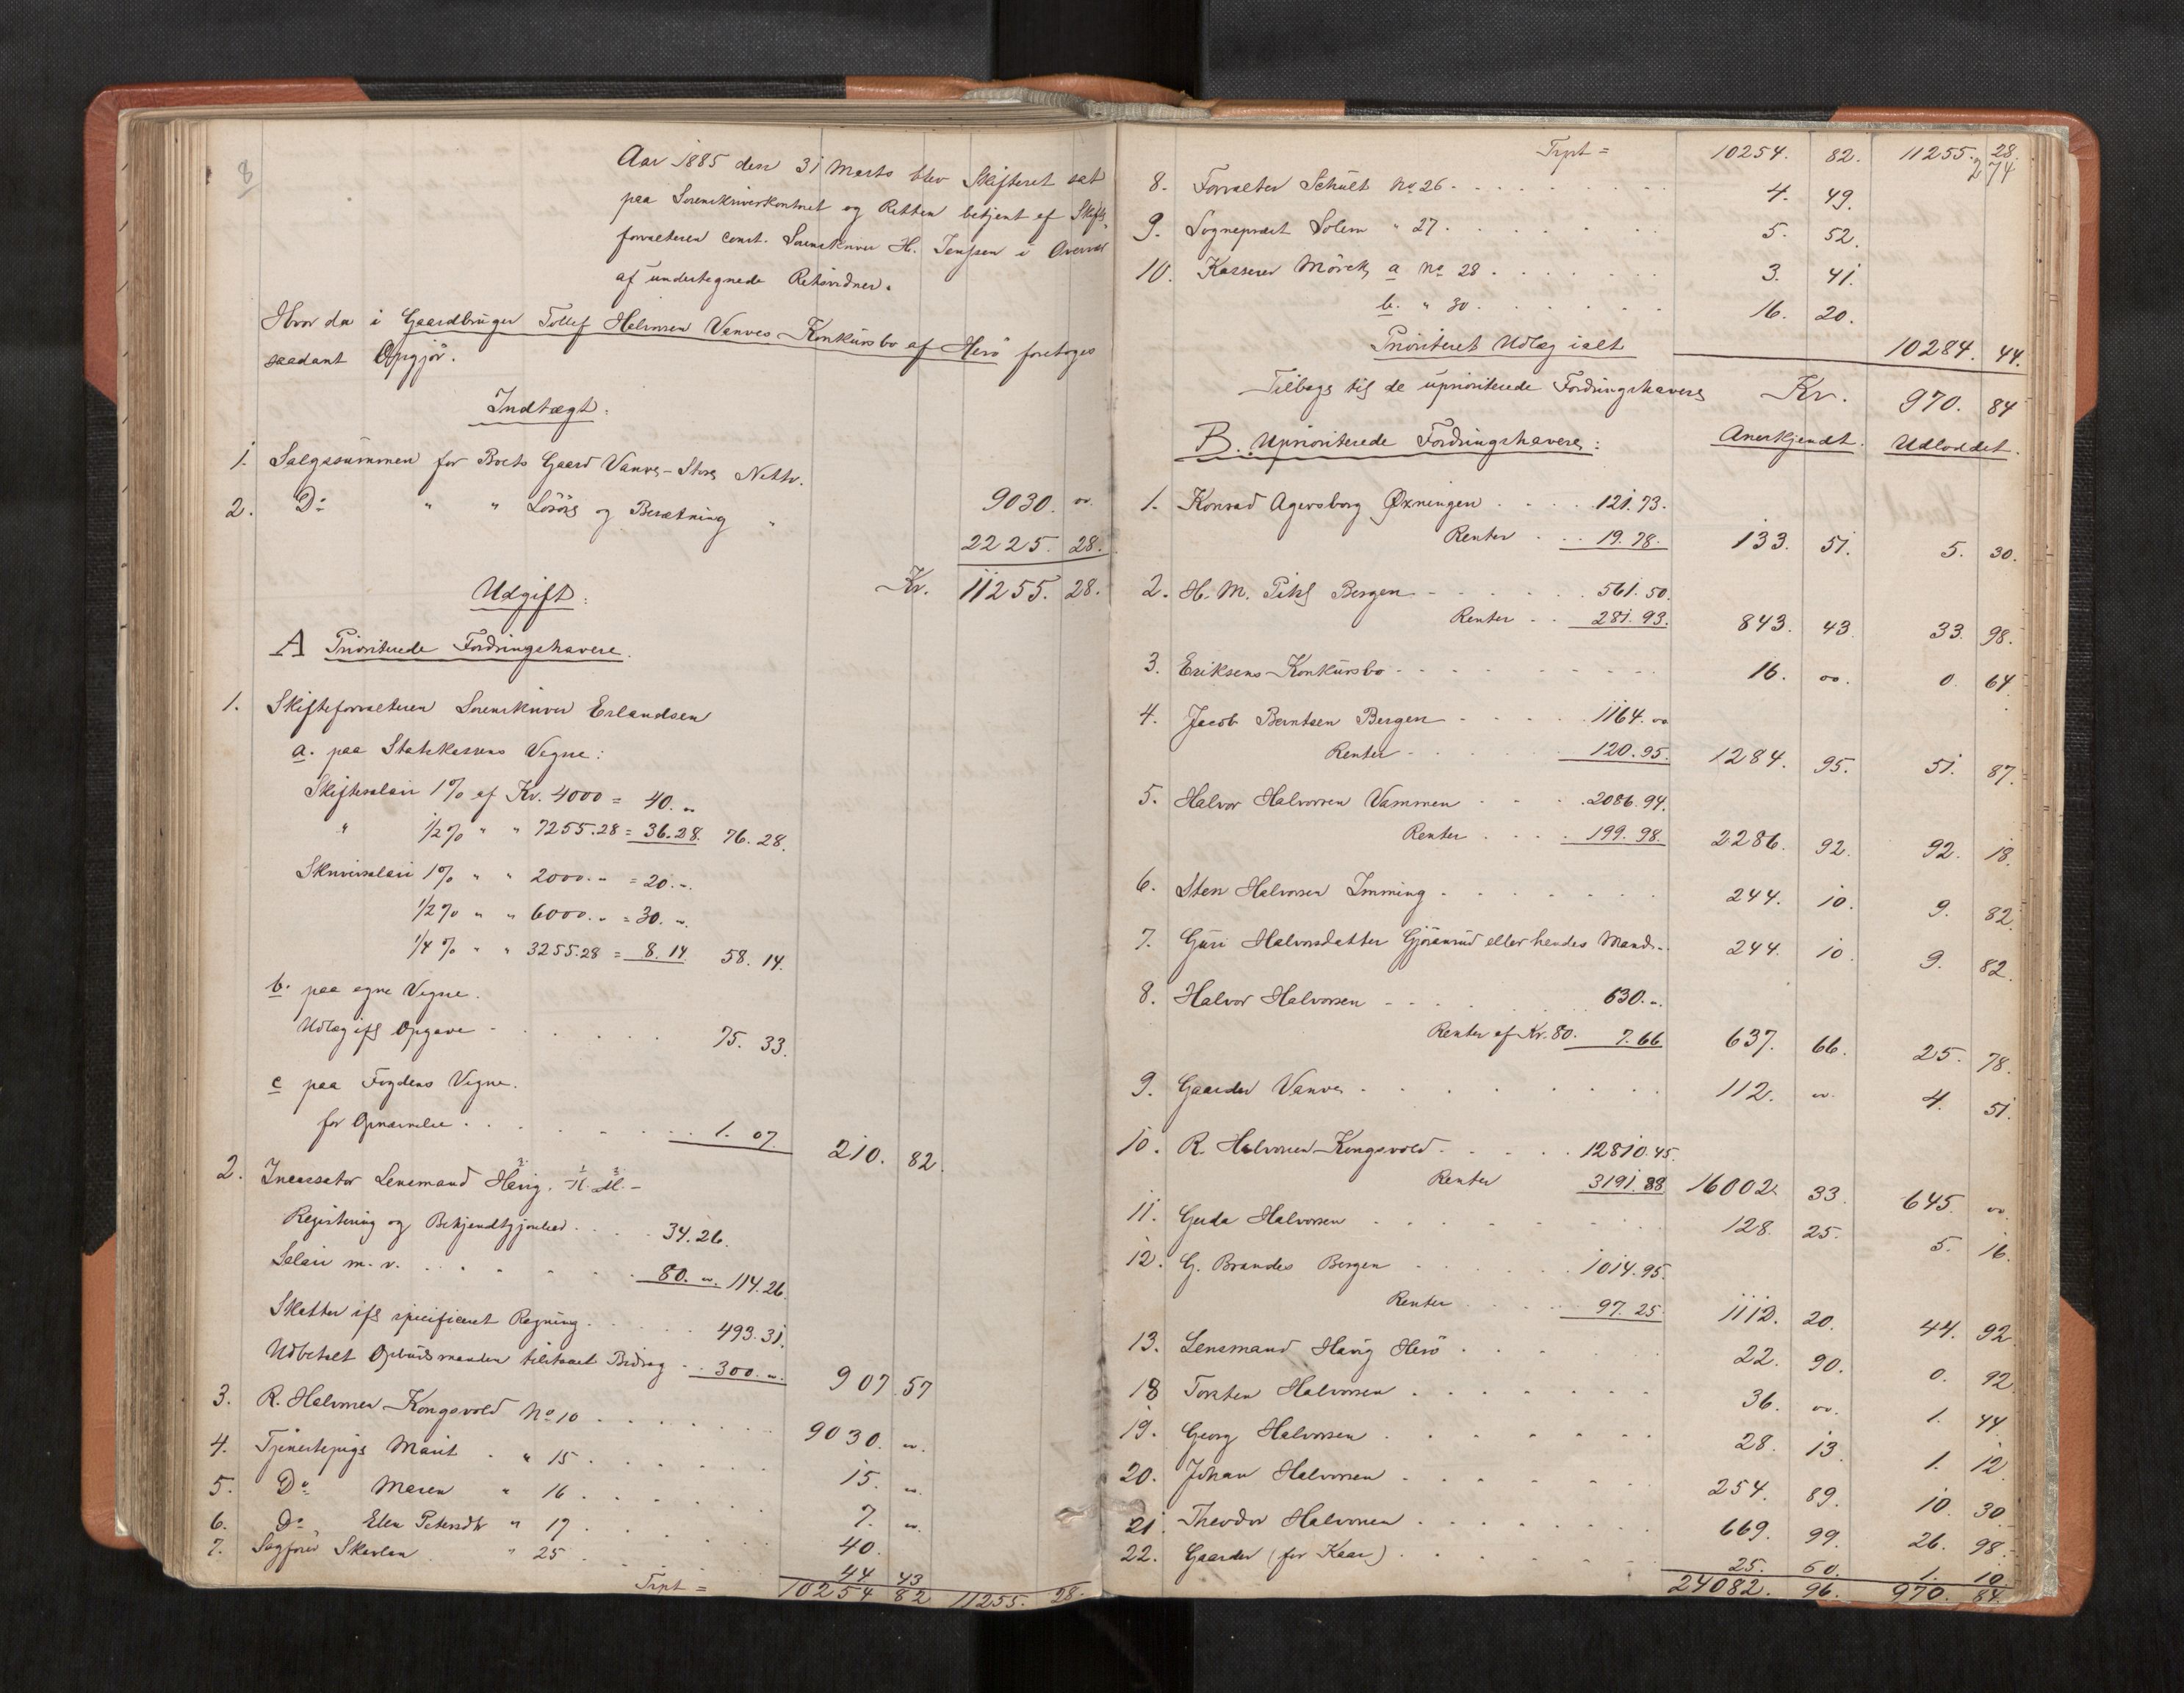 8
Aar 1885 den 31 Marts blev Skifteret sat
paa Sorenskriverkontoret og Retten betjent af Skifte
forvalteren const. Sorenskriver H. Jenssen i Overvær
af undertegnede Retsvidner.
Hvor da i Gaardbruger Tollef Halvorsen Vanves Konkursbo af Herö foretoges
saadant Opgjör.
Indtægt:
1. Salgssummen for Boets Gaard Vanves-Store Netto. 9030. 00.
2. Do " " Lösöre og Besætning " 2225. 28.
Kr. 11255. 28.
Udgift:
A Prioriterede Fordringshavere.
1. Skifteforvalteren Sorenskriver Erlandsen
a. paa Statskassens Vegne:
Skiftesalair 1% af Kr. 4000 = 40. "
" 1/2% " " 7255.28 = 36.28. 76. 28.
Skriversalair 1% " " 2000. " = 20. ".
1/2% " " 6000. " = 30. ".
1/4% " " 3255.28 = 8. 14 58. 14.
b. paa egne Vegne.
Udlæg ifl Opgave . . . 75. 33.
c paa Fogdens Vegne.
for Opnævnelse . . . 1. 07. 210. 82.
2. Incassator Lensmand Havig.
Registering og Bekjendtgjörelse . . 34. 26.
Salair m. v. . . . 80. ". 114. 26.
Skatter ifl specificeret Regning . . . 493. 31.
Udbetalt Opbudsmanden tilstaaet Bidrag . . 300. ". 907. 57
3. R. Halvorsen Kongsvold No 10 . . . 9030. ".
4. Tjenestepige Marit . " 15 . . . 15. ".
5. Do Maren " 16 . . . 7. ".
6. Do Elen Petersdtr " 17 . . . 40.
7. Sagförer Skavlan " 25 . . . 44 43
Trpt = 10254 82 11255. 28.
Trpt = 10254. 82. 11255. 28.
274
8. Forvalter Schult No 26 . . . 4. 49.
9. Sogneprest Solem " 27 . . . 5. 52.
10. Kasserer Mörch, a No 28 . . . 3. 41.
b. " 30 . . . 16. 20.
Prioriteret Udlæg ialt 10284. 44.
Tilbage til de uprioriterede Fordringshavere Kr. 970. 84
B. Uprioriterede Fordringshavere: Anerkjendt. Udloddet.
1. Konrad Agersborg Öxningen . . . 121. 73.
Renter . . 19. 78. 133. 51. 5. 30.
2. H. M. Pihl Bergen . . . 561. 50.
Renter . . 281. 93. 843. 43 33. 98.
3. Eriksens Konkursbo . . . 16. 00. 0. 64.
4. Jacob Berntsen Bergen . . . 1164. 00
Renter . . . 120. 95. 1284. 95. 51. 87.
5. Halvor Halvorsen Vammen . . . 2086. 94.
Renter . . . 199. 98. 2286. 92. 92. 18.
6. Sten Halvorsen Imming . . . 244. 10. 9. 82.
7. Guri Halvorsdatter Gjöransrud eller hendes Mand . . 244. 10. 9. 82.
8. Halvor Halvorsen . . . 630. ".
Renter af Kr. 80. 7. 66 637. 66. 25. 78.
9. Gaarder Vanves . . . 112. 00. 4. 51.
10. R. Halvorsen Kongsvold . . . 12810. 45.
Renter 3191. 88 16002. 33 645. 00.
11. Gerda Halvorsen . . . 128. 25. 5. 16.
12. G. Brandes Bergen . . . 1014. 95.
Renter . . . 97. 25 1112. 20. 44. 92
13. Lensmand Havig Herö . . . 22. 90. 0. 92
18 Torsten Halvorsen . . . 36. 00. 1. 44
19. Georg Halvorsen . . . 28. 13 1. 12
20. Johan Halvorsen . . . 254. 89. 10. 30
21. Theodor Halvorsen . . . 669. 99. 26. 98.
22. Gaarder (for Kaar) . . . 25. 60. 1. 10
24082. 96. 970. 84.